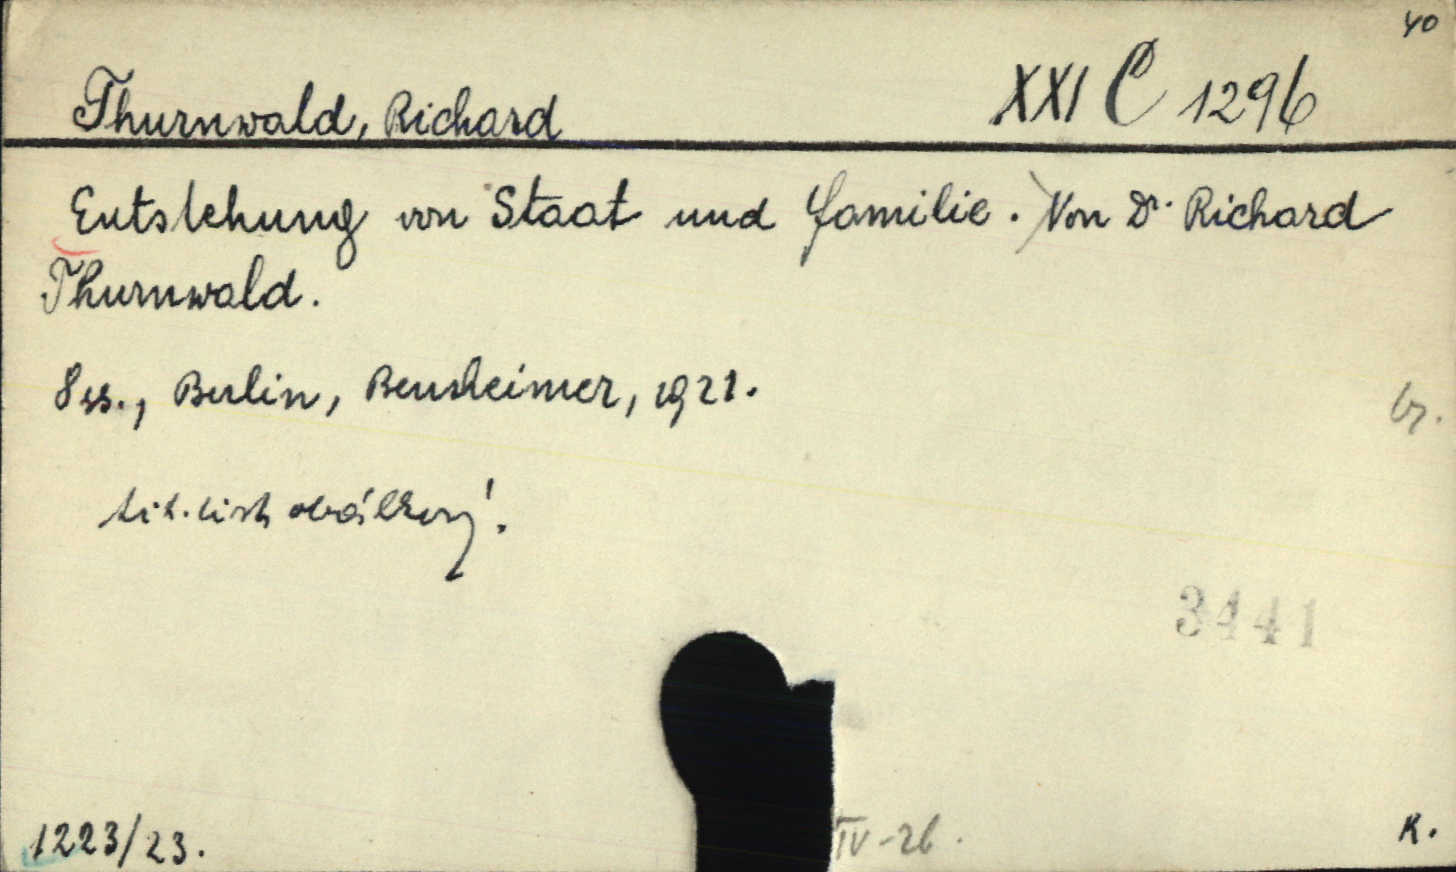 40
Thurnwald, Richard
XXI C 1296
Entstehung von Staat und Familie. Von Dr. Richard
Thurnwald.
8 ss., Berlin, Bensheimer, 1921.
br.
tit. list obálkový.
3441
1223/23.
IV-26.
K.